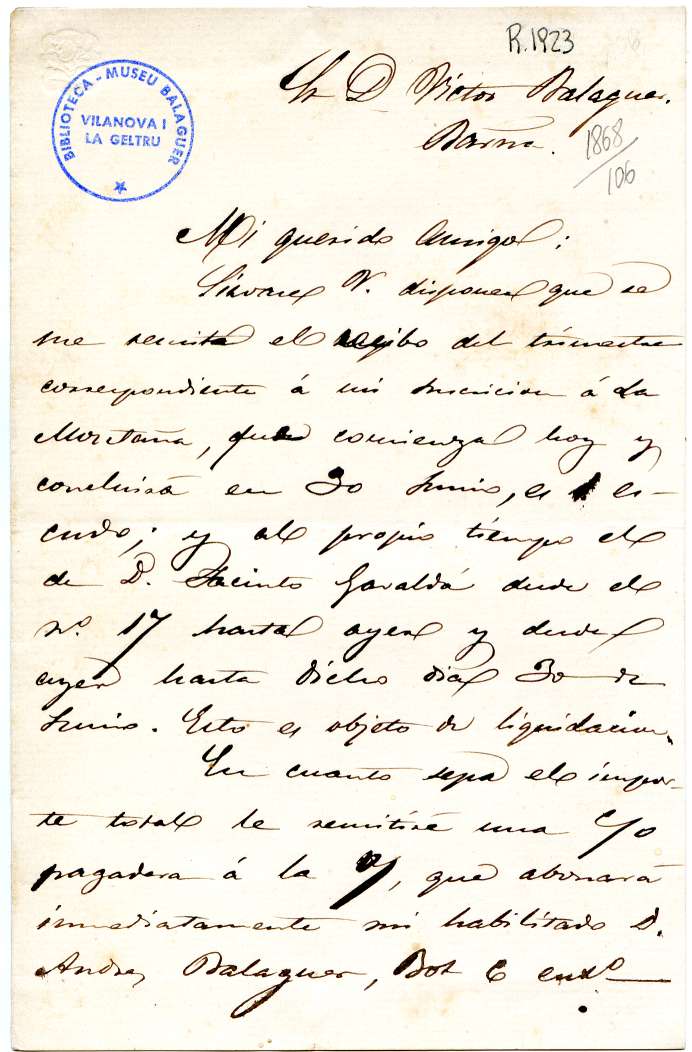 R.1923
BIBLIOTECA - MUSEU BALAGUER
VILANOVA I
LA GELTRU
Sr D Victor Balaguer.
Barna.
1868/106
Mi querido amigo;
Sirvase V. disponer que se
me remita el recibo del trimestre
correspondiente á mi suscricion á La
Montaña, que comienza hoy y
concluirá en 30 Junio, es es-
cudo; y al propio tiempo el
de D. Jacinto Garaldá desde el
nº 17 hasta ayer y desde
ayer hasta dicho dia 30 de
Junio. Esto es objeto de liquidacion.
En cuanto sepa el impor-
te total le remitiré una c/o
pagadera á la v/, que abonará
inmediatamente mi habilitado D.
Andres Balaguer, Bot 6